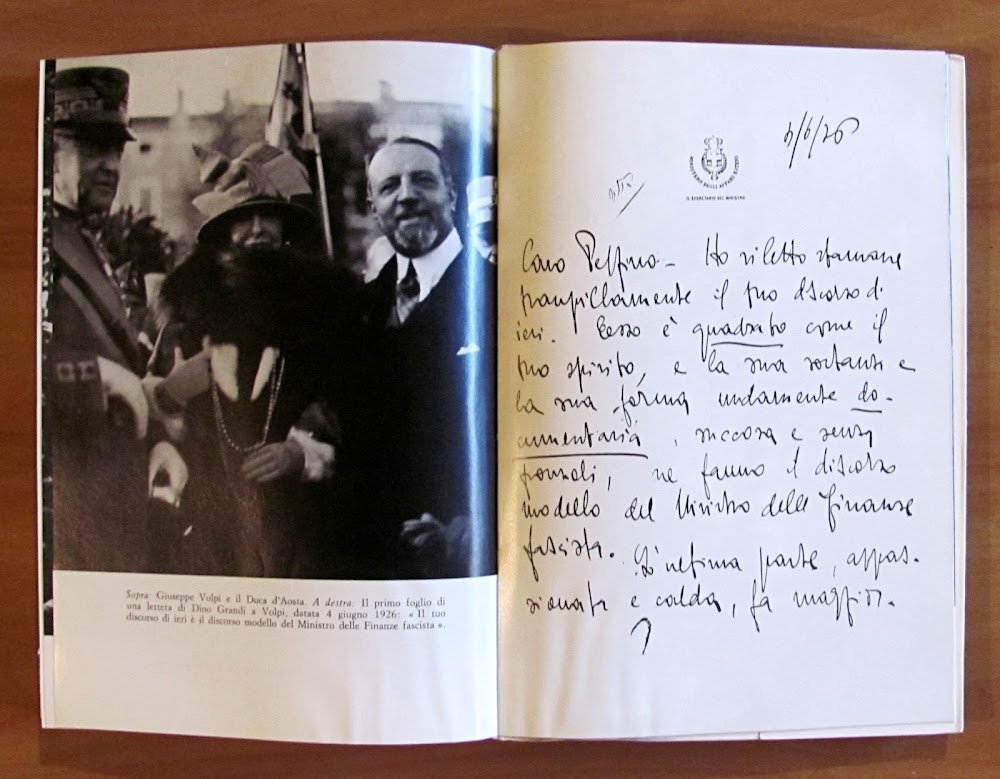 Sopra: Giuseppe Volpi e il Duca d'Aosta. A destra: Il primo foglio di
una lettera di Dino Grandi a Volpi, datata 4 giugno 1926: « Il tuo
discorso di ieri è il discorso modello del Ministro delle Finanze fascista ».
MINISTERO DEGLI AFFARI ESTERI
IL SEGRETARIO DEL MINISTRO
Caro Peppino - Ho riletto stamane
tranquillamente il tuo discorso di
ieri. Esso è quadrato come il
tuo spirito, e la sua sostanza e
la sua forma nudamente do-
cumentaria, succosa e senza
fanno il discorso
modello del Ministro delle Finanze
fascista. L'ultima parte, appas-
sionata e calda, fa